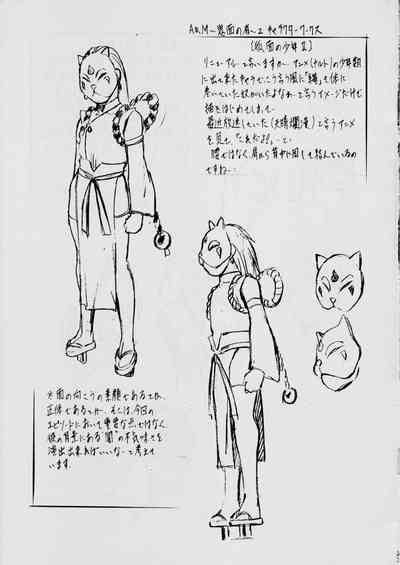 A&M〜異面の眉〜2 キャラクターワークス
[仮面の少年Ⅱ]
リニューアルと言いますか…アニメ(ナルト)の少年期
に出て来たキャラでこう言う風に「縄」を体に
巻いていた奴がいたよなぁ…と言うイメージだけで
描きはじめまして…
最近放送していた(天晴爛漫)と言うアニメ
を見て、
腰ではなく、肩から背中に回して結んでいるの
ですね…
※面の向こうの素顔であるとか、
正体であるとか、そこは、今回の
エピソードにおいて重要な点ではなく
彼の背景にある"闇"の不気味さを
演出出来ればいいな…と考えて
います。